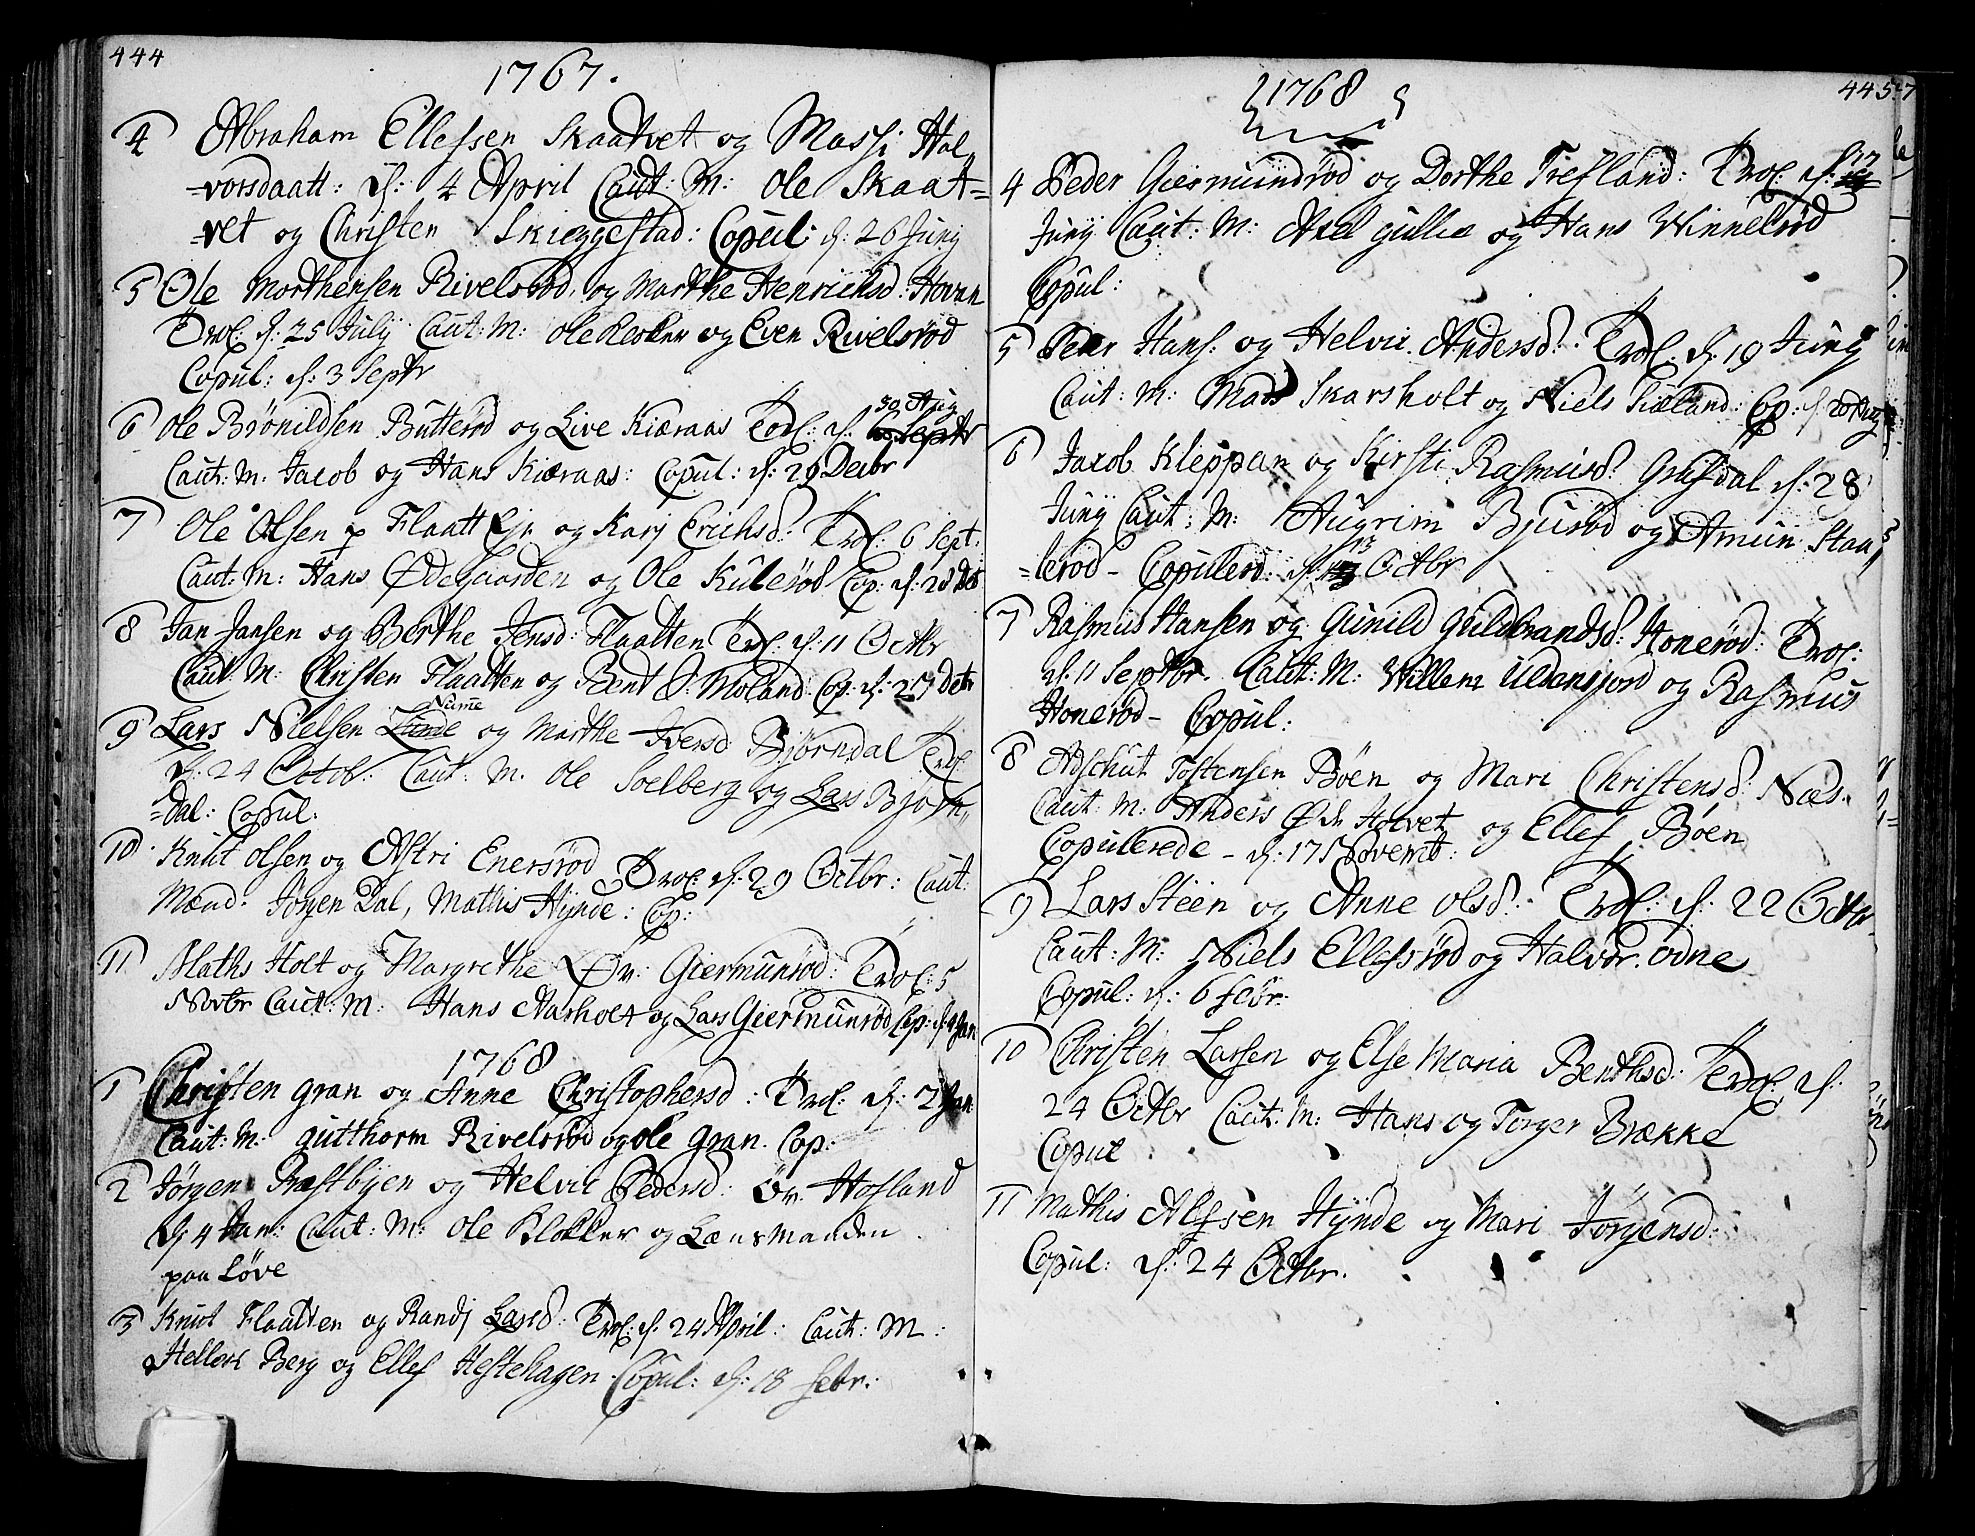 444
1767.
4 Abraham Ellefsen Skaatvet og Massi Hal
=vorsdaatt: d: 4 April Caut: M: Ole Skaat=
=vet og Christen Skieggestad: Copul: d: 26 Junj
5 Ole Morthensen Rivelsrød og Marthe Henrichsd: Hovan
Trol: d: 25 July Caut: M: Ole Klokker og Even Rivelsrød
Copul: d: 3 Septr
30 Aug
6 Ole Brønildsen Butterød og Live Kiæraas Trol: d: Septr
Caut: M. Jacob og Hans Kiæraas: Copul: d: 29 Decbr
7 Ole Olsen p Flaatt Eje og Karj Erichsd: Trol: 6 Sept:
Caut: M: Hans Ødegaarden og Ole Kulerød Cop: d: 28
8 Jan Jansen og Berthe Jensd: Flaatten Trol: d: 11 Octbr
Caut: M: Christen Flaatten og Bent S. Moland Cop: d: 27
9 Lars Nielsen og Marthe Iversd Bjørndal Trol:
d: 24 Octob: Caut: M. Ole Soelberg og Lars Bjørn,
=dal: Copul.
10 Knut Olsen og Astri Enersrød Trol: d: 29 Octbr: Caut:
Mænd. Jørgen Dal, Mathis Hynde: Cop:
11 Maths Holt og Margrethe Øv: Giermunrød: Trol: 5
Novbr Caut: M: Hans Aasholt og Lars Giermunrød Cop: d: Jan
1768
1 Christen Gran og Anne Christophersd: Trol: d: 2 Jan:
Caut: M: Gutthorm Rivelsrød og Ole Gran. Cop:
2 Jørgen Præstbyen og Helvic Pedersd: Øv: Hofland
D: 4 Jan: Caut: M: Ole Klokker og Lænsmanden
paa Løve
3 Knut Flaatten og Randj Larsd: Trol: d: 24 April: Caut: M:
Hellek Berg og Ellef Hestehagen. Copul: d: 18 Febr:
445
1768
4 Peder Giermundrød og Dorthe Trefland: Trol: d: 17
Junj Caut: M: Axel Gullie og Hans Winnelrød
Copul:
5 Peder Hans: og Helvic Andersd: Trol: d: 19 Junj
Caut: M: Mads Skarsholt og Niels Fiæland: Cop: d: 20
6 Jacob Kleppan og Kirsti Rasmusd: Grefsdal d: 28
Junj Caut: M: Augrim Bjurød og Amun Staa
=lerød - Copulerd: d: 13 Octbr
7 Rasmus Hansen og Gunild Guldbrandsd: Honerød: Trol:
d: 11 Septbr. Caut: M: Willem Ulvensjord og Rasmus
Honerød - Copul:
8 Adschut Tostensen Bøen og Mari Christensd: Næs.
Caut: M: Anders Ø Holvet og Ellef Bøen
Copulerede - d: 17 Novemb:
9 Lars Steen og Anne Olsd: Trol: d: 22 Octbr
Caut: M: Niels Ellefsrød og Halvor Odne
Copul: d: 6 Febr:
10 Christen Larsen og Else Maria Benthsd: Trol: d:
24 Octbr Caut: M: Hans og Torger Brække
Copul
11 Mathis Alfsen Hynde og Mari Jørgensd:
Copul: d: 24 Octbr.